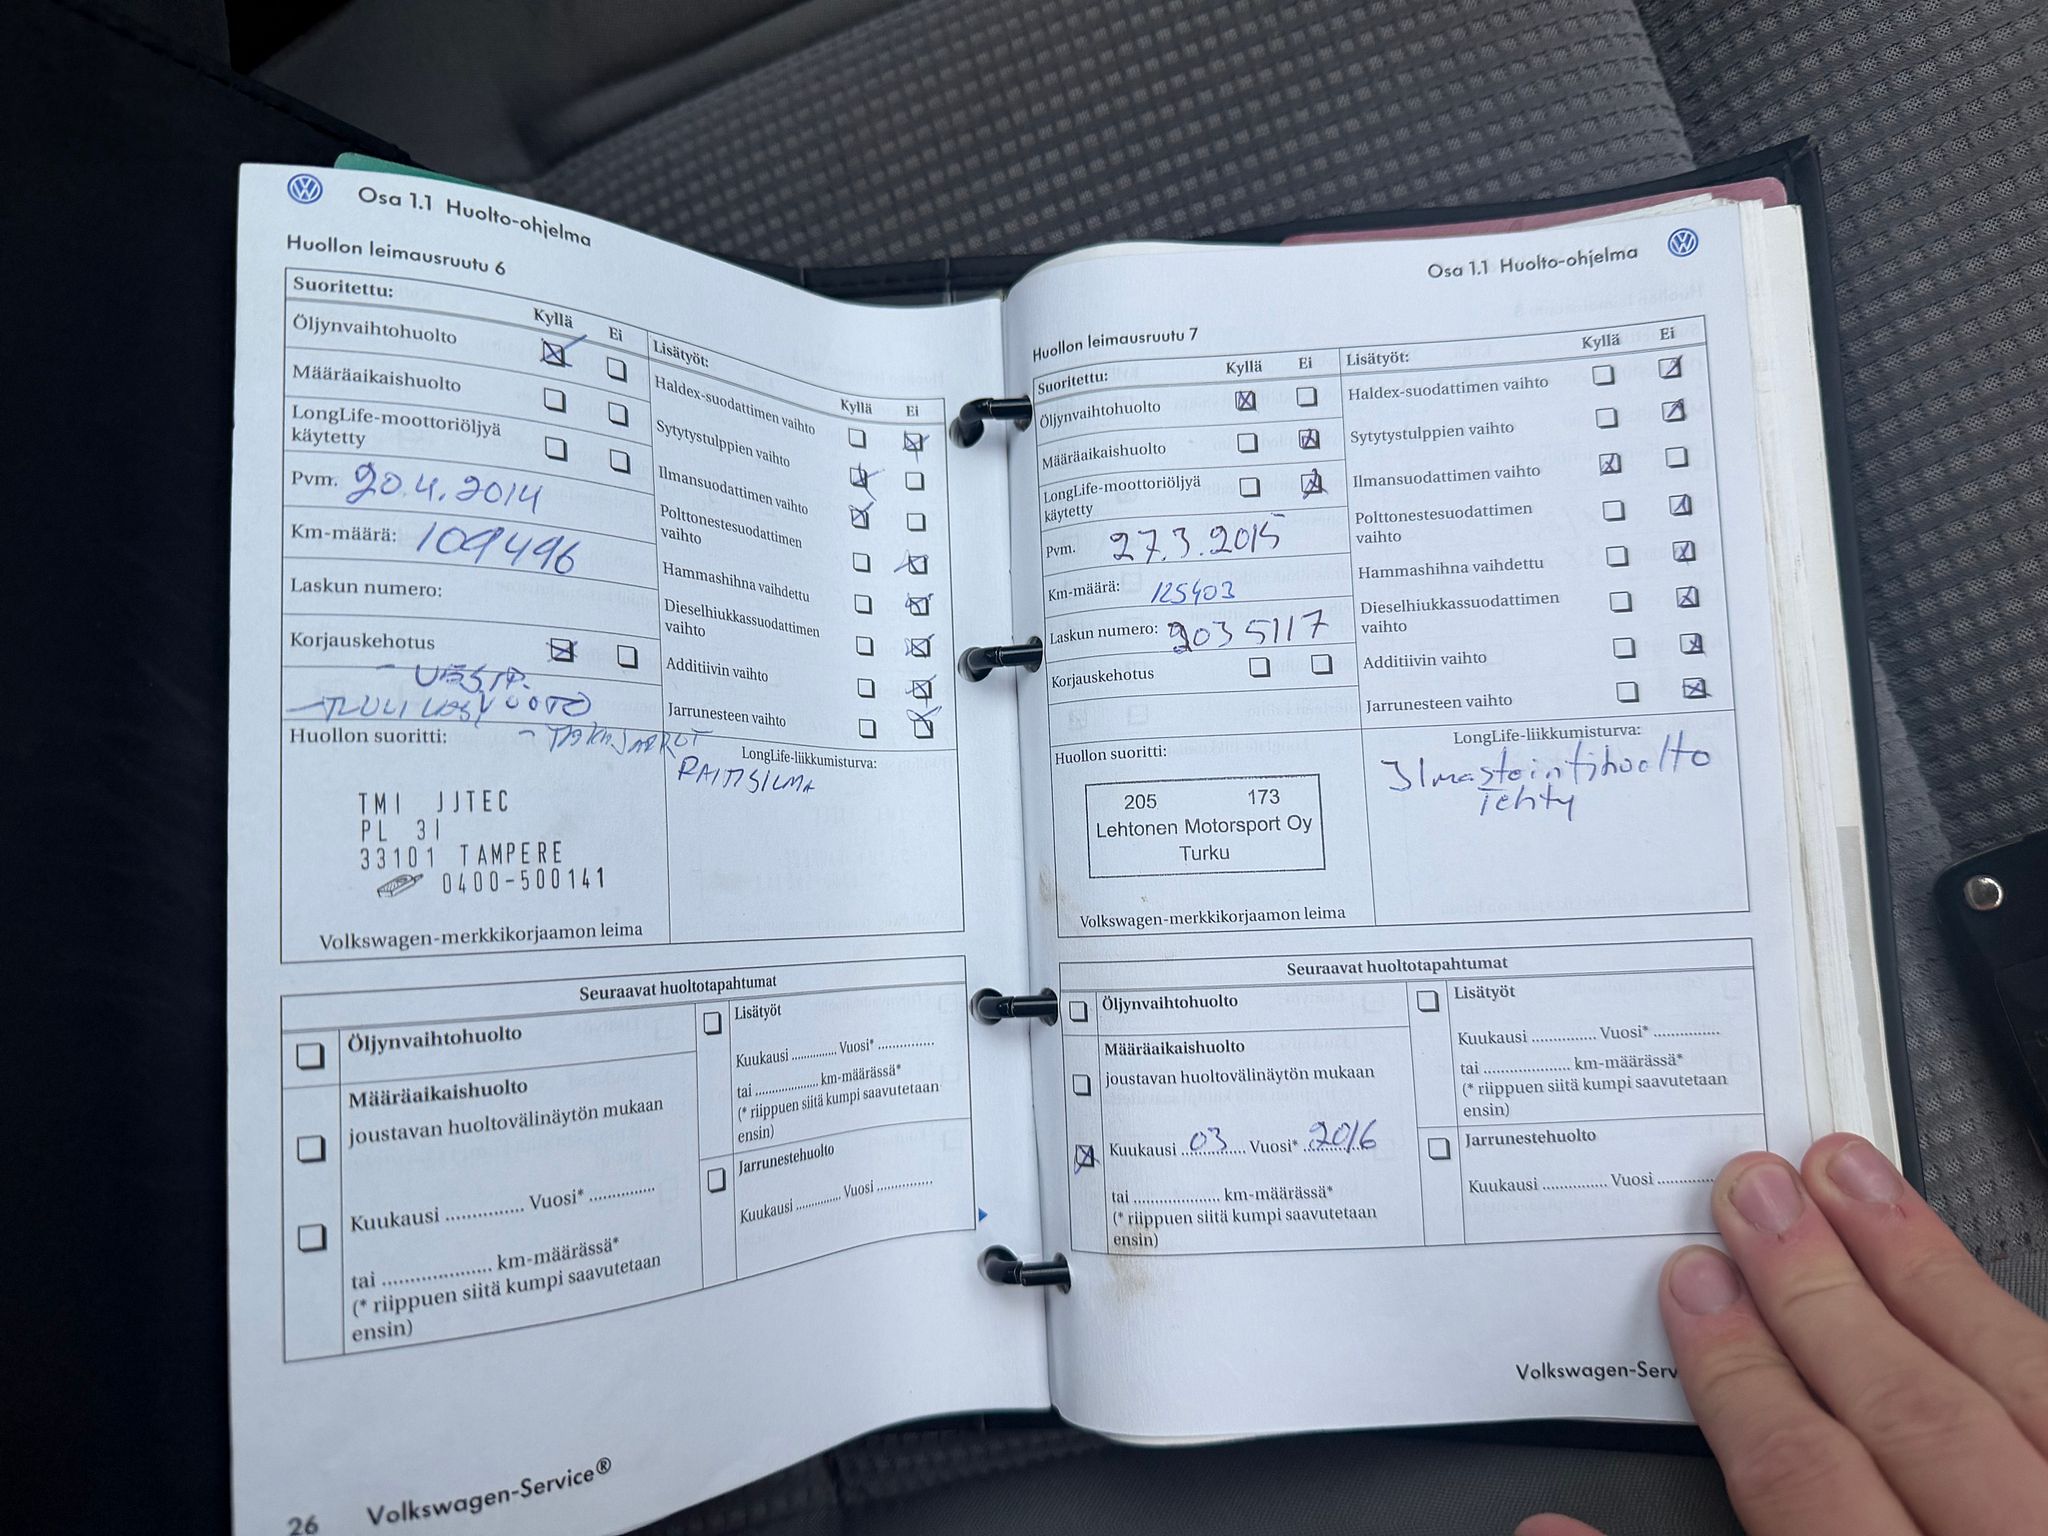 Osa 1.1 Huolto-ohjelma
Huollon leimausruutu 6
Suoritettu:
Kyllä Ei
Öljynvaihtohuolto
Määräaikaishuolto
LongLife-moottoriöljyä
käytetty
Pvm. 20.4.2014
Km-määrä: 109496
Laskun numero:
Korjauskehotus
TUULILASI VUOTO
Lisätyöt:
Kyllä Ei
Haldex-suodattimen vaihto
Sytytystulppien vaihto
Ilmansuodattimen vaihto
Polttonestesuodattimen
vaihto
Hammashihna vaihdettu
Dieselhiukkassuodattimen
vaihto
Additiivin vaihto
Jarrunesteen vaihto
Huollon suoritti:
- TAKAJARRUT
RAITISILMA
LongLife-liikkumisturva:
TMI JJTEC
PL 31
33101 TAMPERE
0400-500141
Volkswagen-merkkikorjaamon leima
Seuraavat huoltotapahtumat
Öljynvaihtohuolto
Määräaikaishuolto
joustavan huoltovälinäytön mukaan
Kuukausi ............... Vuosi* ...............
tai .................... km-määrässä*
(* riippuen siitä kumpi saavutetaan
ensin)
Lisätyöt
Kuukausi .............. Vuosi* ..............
tai .................... km-määrässä*
(* riippuen siitä kumpi saavutetaan
ensin)
Jarrunestehuolto
Kuukausi .............. Vuosi ..............
26 Volkswagen-Service®
Osa 1.1 Huolto-ohjelma
Huollon leimausruutu 7
Suoritettu:
Kyllä Ei
Öljynvaihtohuolto
Määräaikaishuolto
LongLife-moottoriöljyä
käytetty
Pvm. 27.3.2015
Km-määrä: 125403
Laskun numero: 2035117
Korjauskehotus
Lisätyöt:
Kyllä Ei
Haldex-suodattimen vaihto
Sytytystulppien vaihto
Ilmansuodattimen vaihto
Polttonestesuodattimen
vaihto
Hammashihna vaihdettu
Dieselhiukkassuodattimen
vaihto
Additiivin vaihto
Jarrunesteen vaihto
Huollon suoritti:
205 173
Lehtonen Motorsport Oy
Turku
Volkswagen-merkkikorjaamon leima
LongLife-liikkumisturva:
Ilmastointihuolto
Tehty
Seuraavat huoltotapahtumat
Öljynvaihtohuolto
Määräaikaishuolto
joustavan huoltovälinäytön mukaan
Kuukausi ..03.. Vuosi* ..2016
tai .................... km-määrässä*
(* riippuen siitä kumpi saavutetaan
ensin)
Lisätyöt
Kuukausi ............... Vuosi* ...............
tai .................... km-määrässä*
(* riippuen siitä kumpi saavutetaan
ensin)
Jarrunestehuolto
Kuukausi ............... Vuosi .............
Volkswagen-Serv